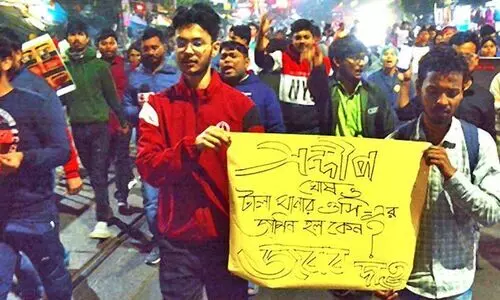 সন্দীপ
ঘোষ ও
টালা থানার ওসি-এর
জামিন হল কেন?
জবাব দাও
NY